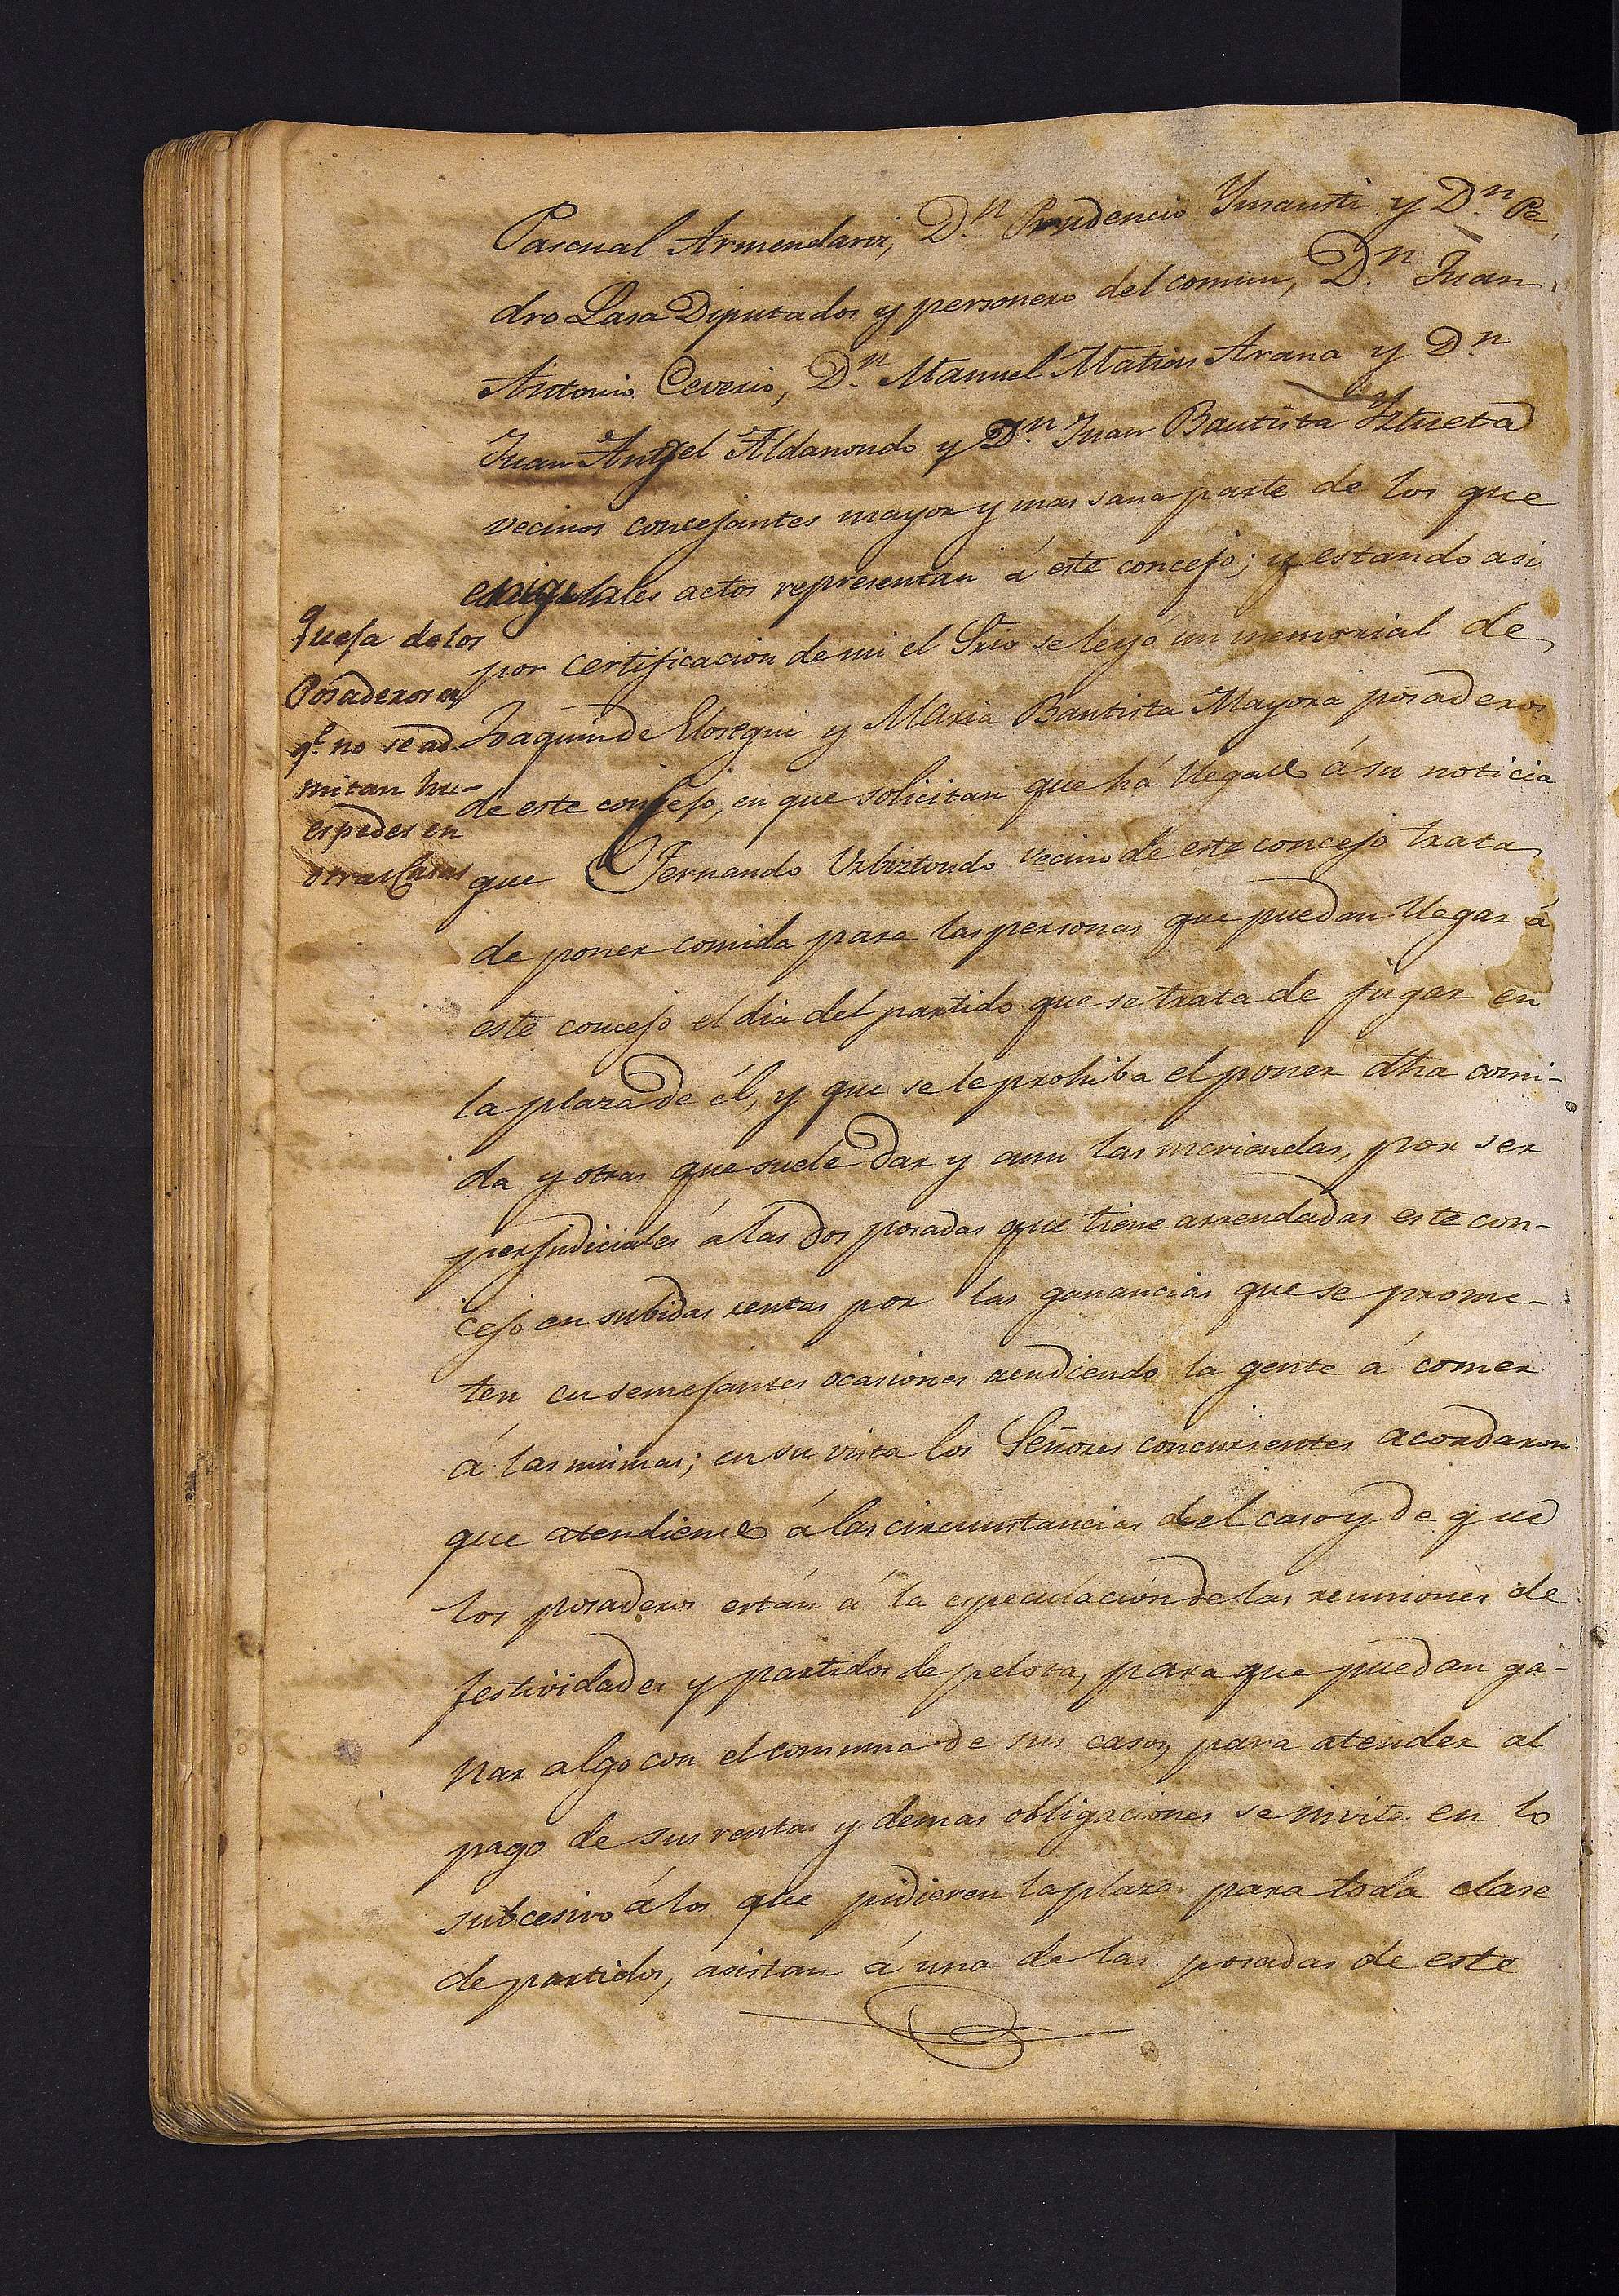 Pascual Armendariz, D.n Prudencio Ynausti y D.n Pe
dro Lasa Diputados y personero del comun, D.n Juan
Antonio Ceverio, D.n Manuel Matias Arana y D.n
Juan Angel Aldanondo y D.n Juan Bautista Iztueta
vecinos concejantes mayor y mas sana parte de los que
en iguales actos representan á este concejo; y estando asi
por certificacion de mi el Srio se leyó un memorial de
Joaquin de Elosegui y Maria Bautista Mayora posaderos
de este concejo, en que solicitan que há llegado á su noticia
que Fernando Urbiztondo vecino de este concejo trata
de poner comida para las personas que puedan llegar á
este concejo el dia del partido que se trata de jugar en
la plaza de él, y que se le prohiba el poner dha comi-
da y otras que suele dar y aun las meriendas, por ser
perjudiciales á las dos posadas que tiene arrendadas este con-
cejo en subidas rentas por las ganancias que se prome-
ten en semejantes ocasiones acudiendo la gente á comer
á las mismas; en su vista los Señores concurrentes acordaron:
que atendiendo á las circunstancias del caso y de que
los posaderos están á la especulacion de las reuniones de
festividades y partidos de pelota, para que puedan ga-
nar algo con el comuna de sus casas, para atender al
pago de sus rentas y demas obligaciones se invite en lo
subcesivo á los que pidieren la plaza para toda clase
de partidos, asistan á una de las posadas de este
Queja de los
Posaderos en
q.e no se ad-
mitan hu-
espedes en
otras Casas